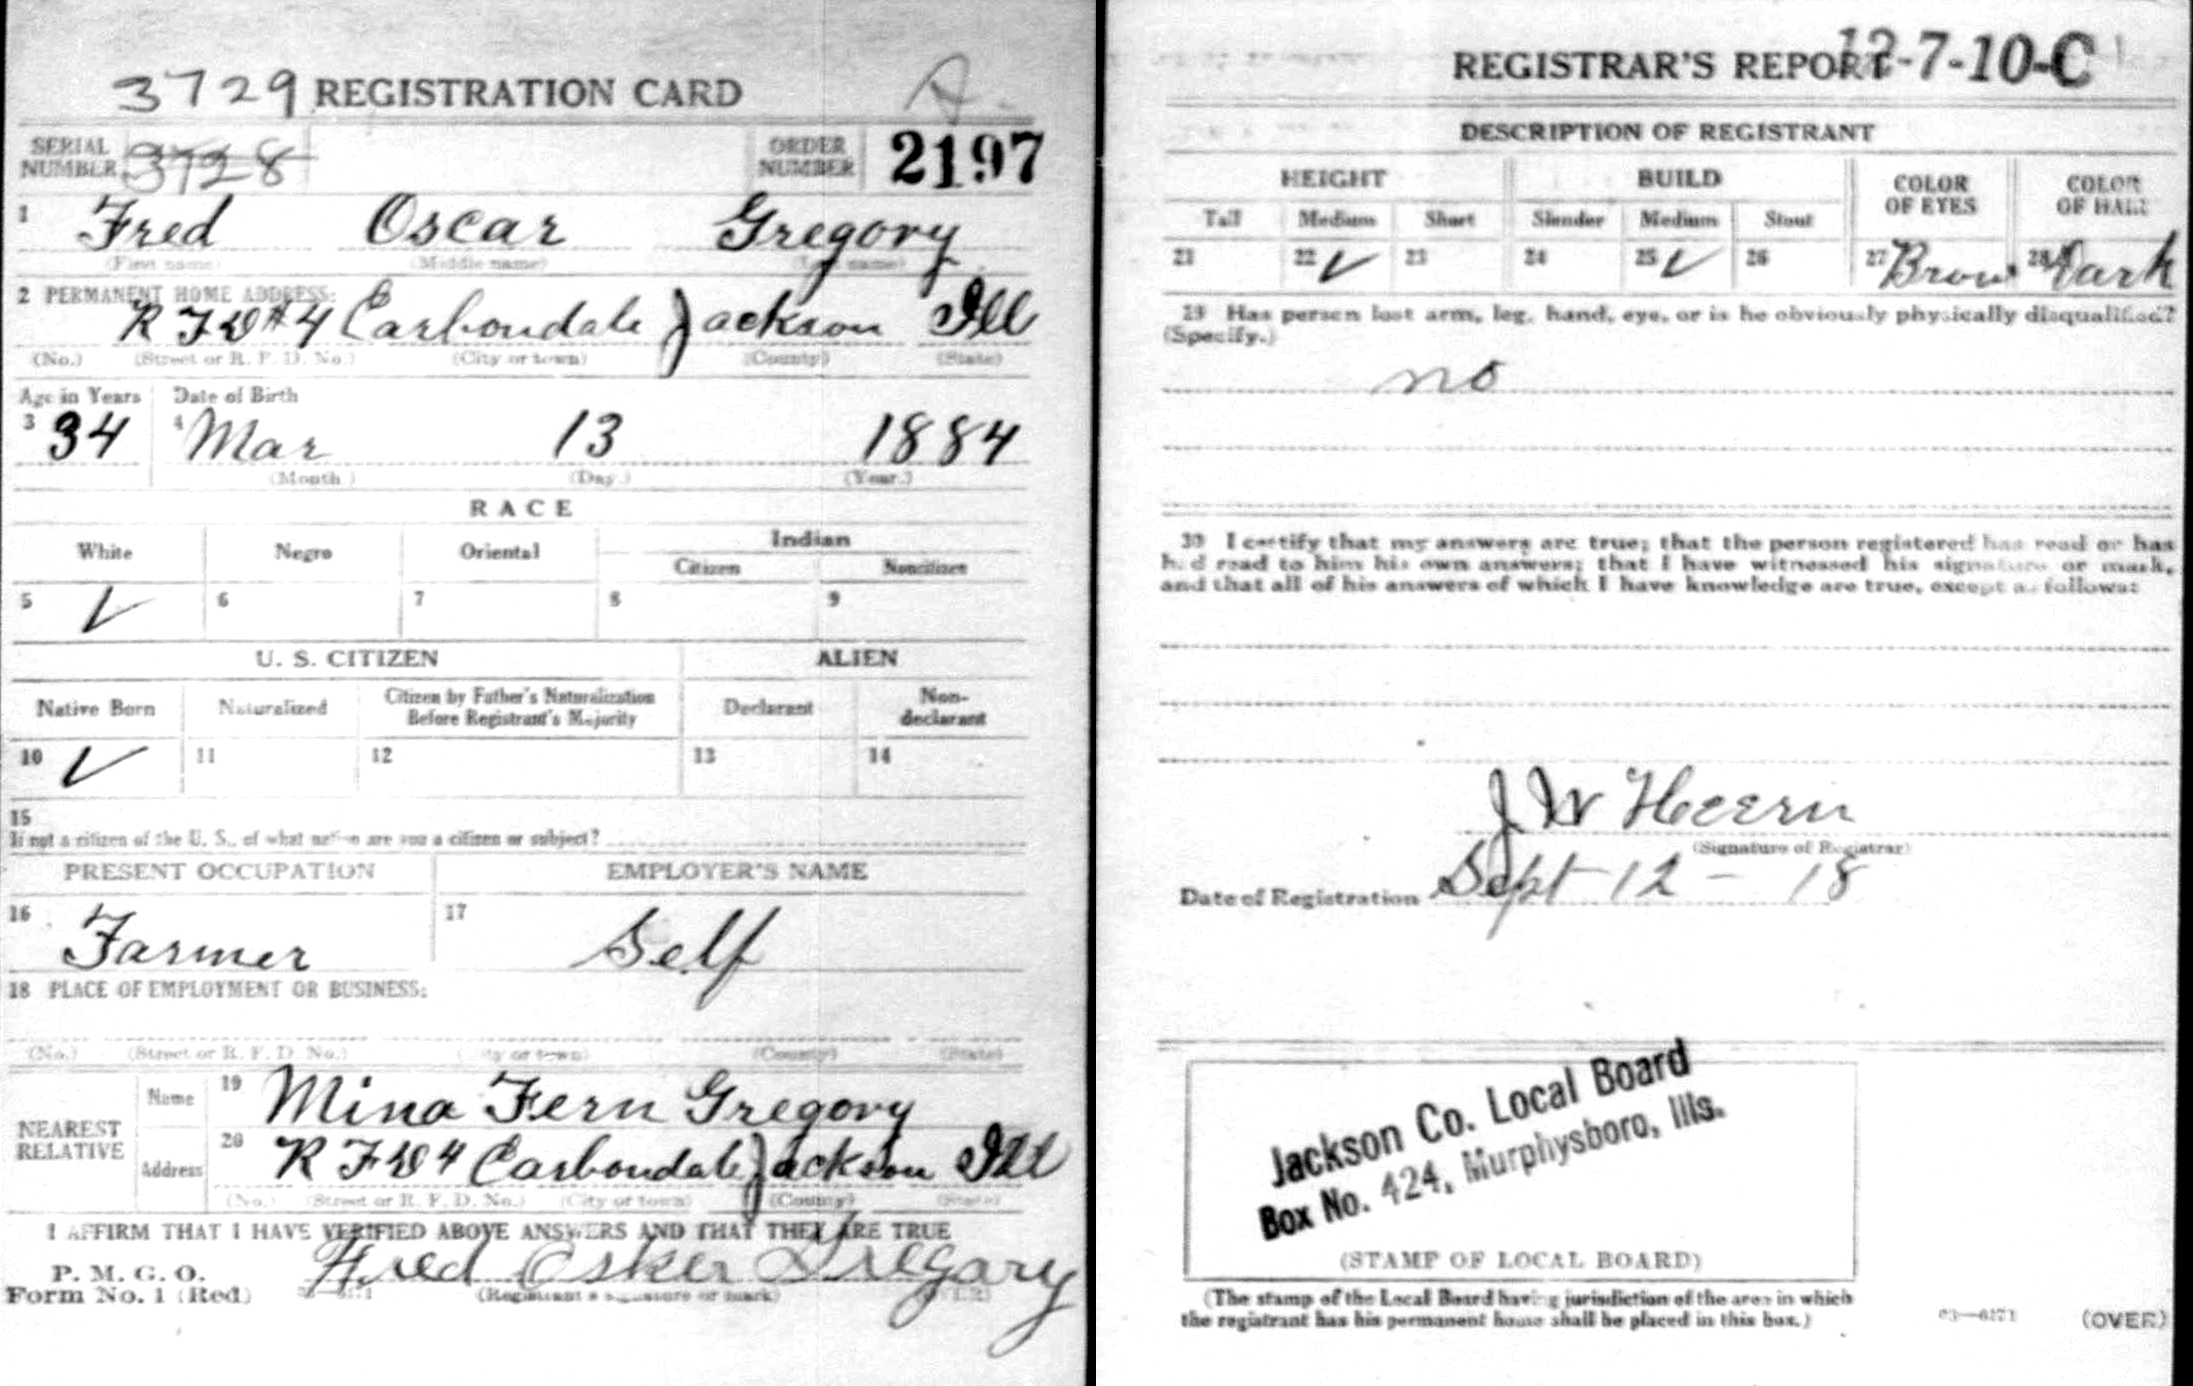 3729 REGISTRATION CARD A.
SERIAL NUMBER 3728 ORDER NUMBER 2197
1 Fred Oscar Gregory
(First name) (Middle name) (Last name)
2 PERMANENT HOME ADDRESS:
R F D # 4 Carbondale Jackson Ill
(No.) (Street or R. F. D. No.) (City or town) (County) (State)
Age in Years Date of Birth
3 34 4 Mar 13 1884
(Month.) (Day.) (Year.)
RACE
White Negro Oriental Indian
Citizen Noncitizen
5 ✓ 6 7 8 9
U. S. CITIZEN ALIEN
Native Born Naturalized Citizen by Father's Naturalization Before Registrant's Majority Declarant Non-declarant
10 ✓ 11 12 13 14
15
If not a citizen of the U. S., of what nation are you a citizen or subject?
PRESENT OCCUPATION EMPLOYER'S NAME
16 Farmer 17 Self
18 PLACE OF EMPLOYMENT OR BUSINESS:
(No.) (Street or R. F. D. No.) (City or town) (County) (State)
NEAREST RELATIVE
Name 19 Mina Fern Gregory
Address 20 R F D 4 Carbondale Jackson Ill
(No.) (Street or R. F. D. No.) (City or town) (County) (State)
I AFFIRM THAT I HAVE VERIFIED ABOVE ANSWERS AND THAT THEY ARE TRUE
P. M. G. O.
Form No. 1 (Red) Fred Osker Gregary
(Registrant's signature or mark)
REGISTRAR'S REPORT 12-7-10-C
DESCRIPTION OF REGISTRANT
HEIGHT BUILD COLOR OF EYES COLOR OF HAIR
Tall Medium Short Slender Medium Stout
21 22 ✓ 23 24 25 ✓ 26 27 Brown 28 Dark
29 Has person lost arm, leg, hand, eye, or is he obviously physically disqualified?
(Specify.)
no
30 I certify that my answers are true; that the person registered has read or has
had read to him his own answers; that I have witnessed his signature or mark,
and that all of his answers of which I have knowledge are true, except as follows:
J W Heern
(Signature of Registrar)
Date of Registration Sept 12 - 18
Jackson Co. Local Board
Box No. 424, Murphysboro, Ills.
(STAMP OF LOCAL BOARD)
(The stamp of the Local Board having jurisdiction of the area in which
the registrant has his permanent home shall be placed in this box.)
03—6171 (OVER)